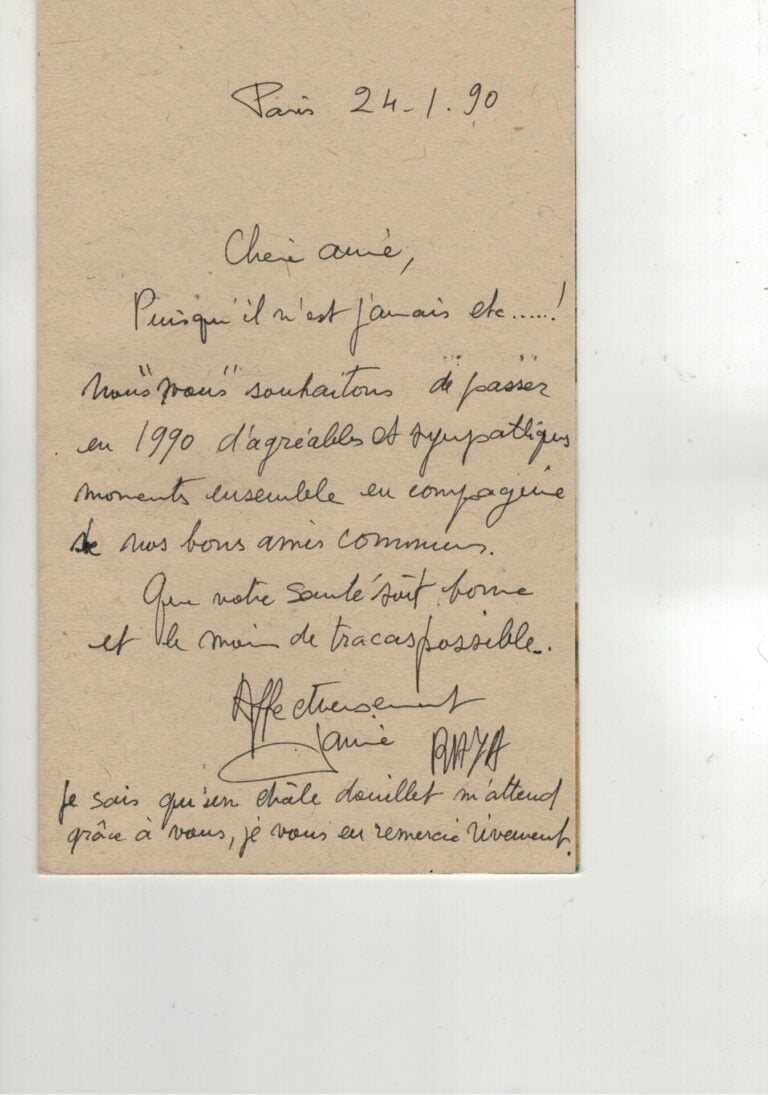 Paris 24-1.90
Chère amie,
Puisqu'il n'est jamais etc.....!
nous "nous" souhaitons de passer
en 1990 d'agréables et sympathiques
moments ensemble en compagnie
de nos bons amis communs.
Que votre santé soit bonne
et le moins de tracas possible.
Affectueusement
RAYA
Je sais qu'un châle douillet m'attend
grâce à vous, je vous en remercie vivement.